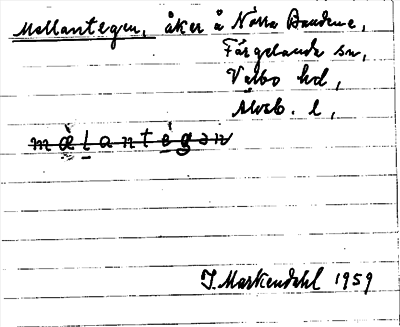 Mellantegen, åker å Norra Bandene,
Färgelanda sn,
Valbo hd,
Älvsb. l,
mælantegən
J. Markendahl 1959